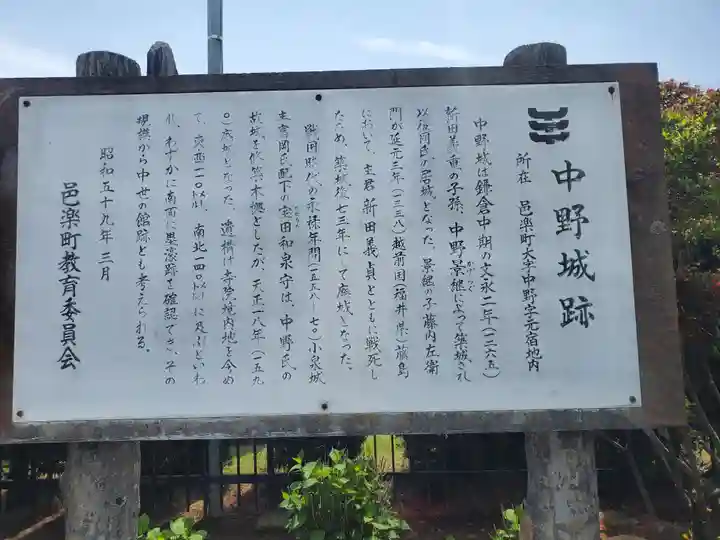 中野城跡
所在 邑楽町大字中野字元宿地内
中野城は鎌倉中期の文永二年(一二六五)
新田義重の子孫、中野景継によって築城され
かげつぐ
以后同氏の居城となった。景継の子藤内左衛
門が延元三年(一三三八)越前国(福井県)藤島
において、主君新田義貞とともに戦死し
たため、築城後七三年にして廃城となった。
戦国時代の永禄年間(一五五八〜七〇)小泉城
主富岡氏配下の宝田和泉守は、中野氏の
故城を修築本拠としたが、天正一八年(一五九
〇)廃城となった。遺構は寺院境内地を含め
て、東西一一〇㍍、南北一四〇㍍に及ぶといわ
れ、わずかに南面に塁濠跡を確認でき、その
規模から中世の館跡とも考えられる。
昭和五十九年三月
邑楽町教育委員会